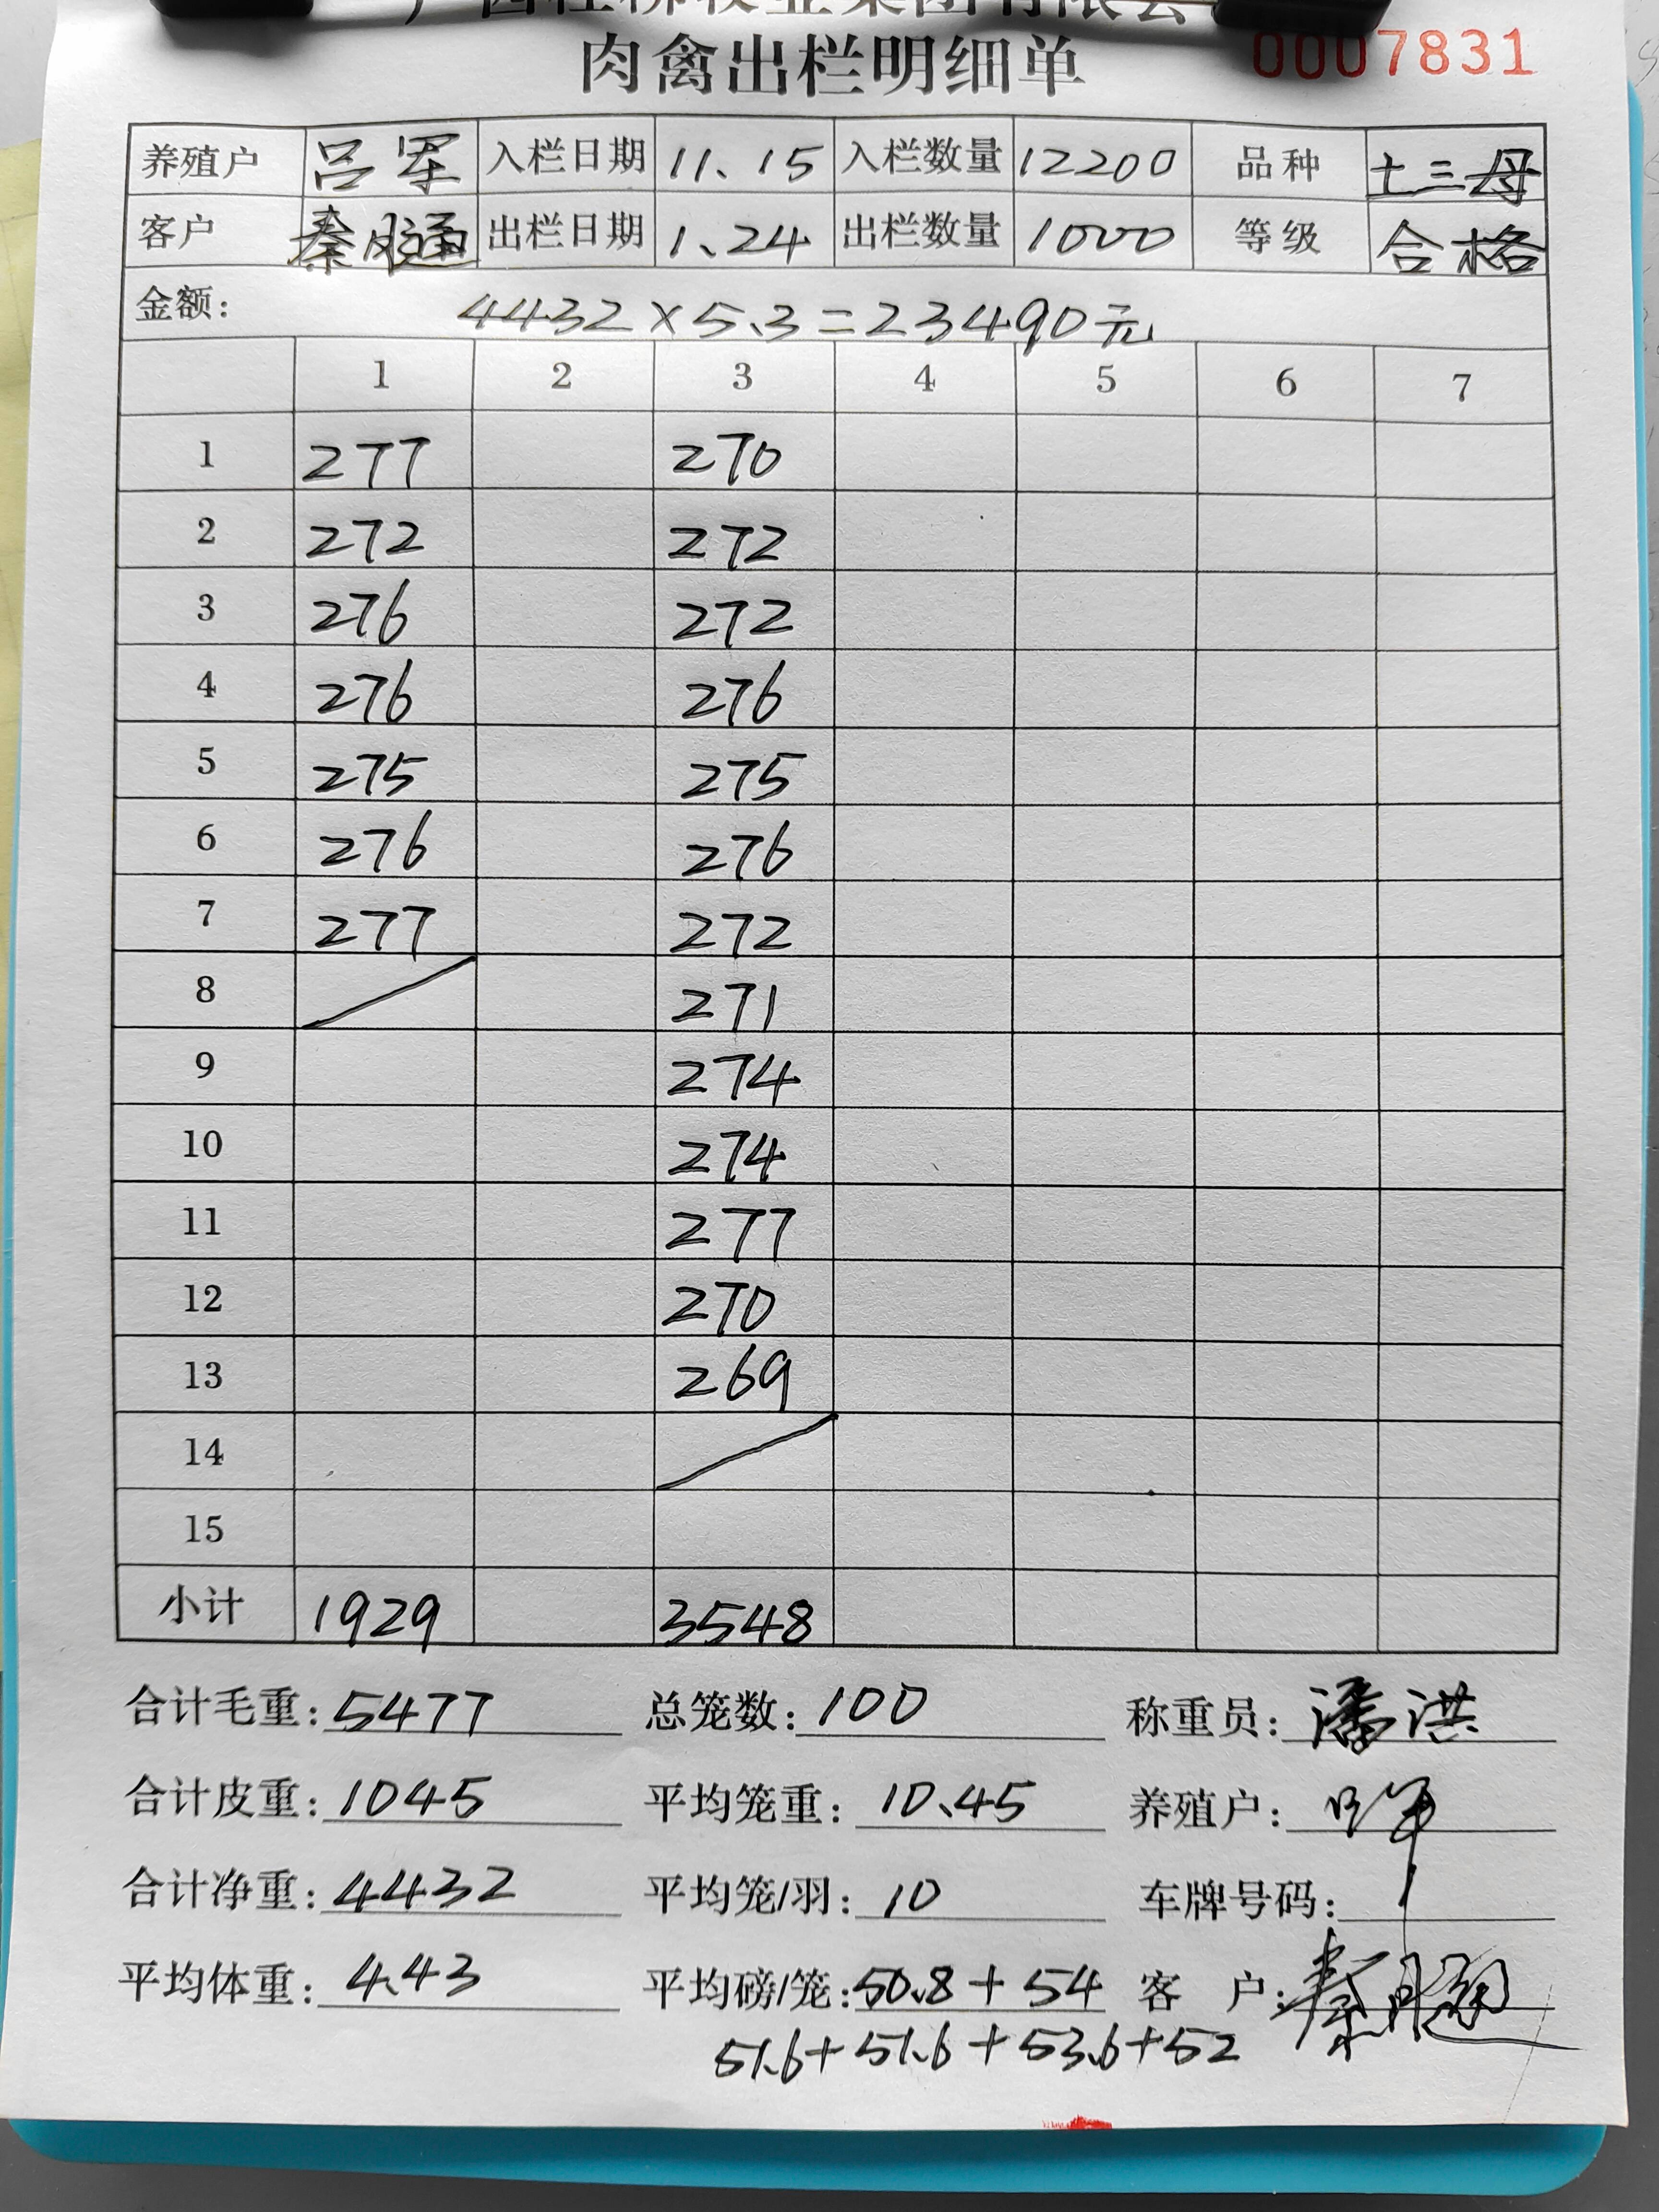 肉禽出栏明细单 0007831
养殖户 吕军 入栏日期 11、15 入栏数量 12200 品种 土三母
客户 秦 出栏日期 1、24 出栏数量 1000 等级 合格
金额: 4432×5.3=23490元
1 2 3 4 5 6 7
1 277 270
2 272 272
3 276 272
4 276 276
5 275 275
6 276 276
7 277 272
8 271
9 274
10 274
11 277
12 270
13 269
14
15
小计 1929 3548
合计毛重: 5477 总笼数: 100 称重员: 潘洪
合计皮重: 1045 平均笼重: 10.45 养殖户:
合计净重: 4432 平均笼/羽: 10 车牌号码:
平均体重: 4.43 平均磅/笼: 50.8+54 客 户: 秦
51.6+51.6+53.6+52